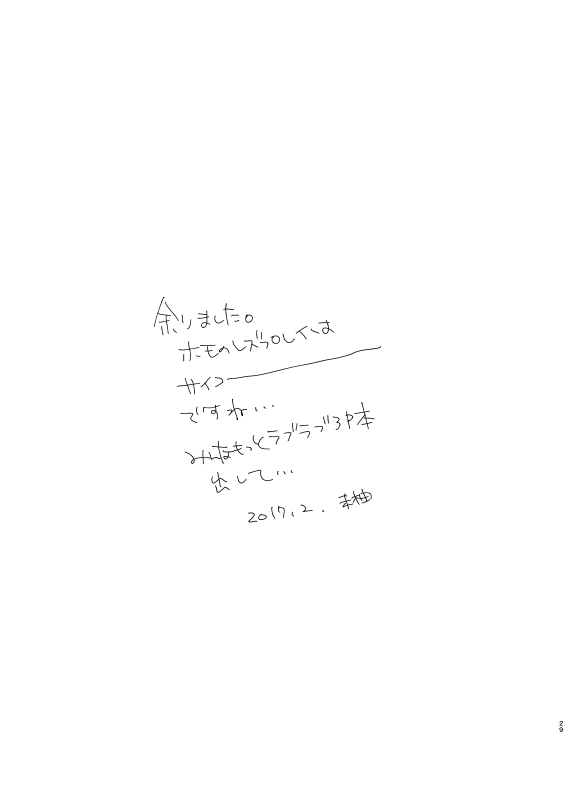 余りました。
ホモのレズプロレイは
サイコー
ですね…
みんなもっとラブラブ3P本
出して…
2017.2.
29